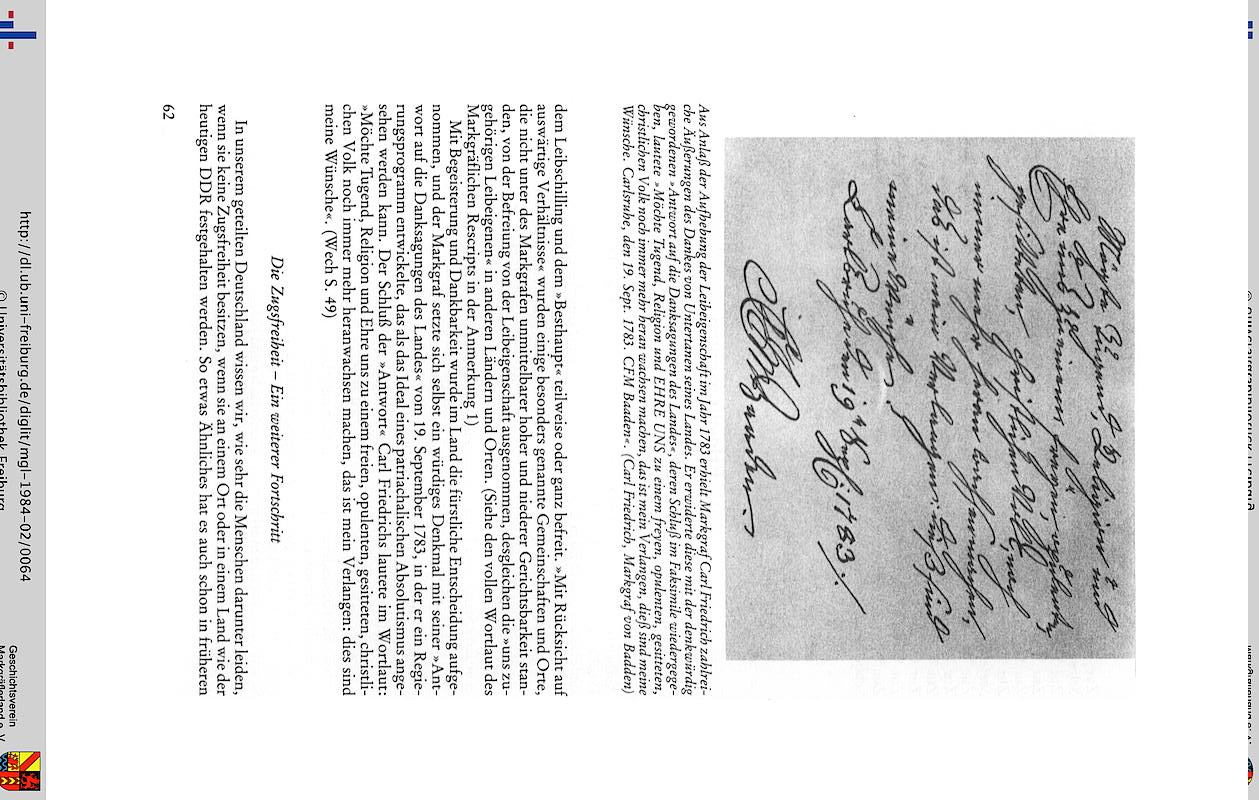 Möchte Tugend, Religion und
Ehre uns zu einem freyen, opulenten,
gesitteten, christlichen Volk
noch immer mehr heran wachsen machen,
das ist mein Verlangen, dieß sind
meine Wünsche.
Carlsruhe den 19 Sept: 1783.
Aus Anlaß der Aufhebung der Leibeigenschaft im Jahr 1783 erhielt Markgraf Carl Friedrich zahlrei-
che Äußerungen des Dankes von Untertanen seines Landes. Er erwiderte diese mit der denkwürdig
gewordenen »Antwort auf die Danksagungen des Landes«, deren Schluß im Faksimile wiedergege-
ben, lautete »Möchte Tugend, Religion und EHRE UNS zu einem freyen, opulenten, gesitteten,
christlichen Volk noch immer mehr heran wachsen machen, das ist mein Verlangen, dieß sind meine
Wünsche. Carlsruhe, den 19. Sept. 1783. CFM Baaden«. (Carl Friedrich, Markgraf von Baden)
dem Leibschilling und dem »Besthaupt« teilweise oder ganz befreit. »Mit Rücksicht auf
auswärtige Verhältnisse« wurden einige besonders genannte Gemeinschaften und Orte,
die nicht unter des Markgrafen unmittelbarer hoher und niederer Gerichtsbarkeit stan-
den, von der Befreiung von der Leibeigenschaft ausgenommen, desgleichen die »uns zu-
gehörigen Leibeigenen« in anderen Ländern und Orten. (Siehe den vollen Wortlaut des
Markgräflichen Rescripts in der Anmerkung 1)
Mit Begeisterung und Dankbarkeit wurde im Land die fürstliche Entscheidung aufge-
nommen, und der Markgraf setzte sich selbst ein würdiges Denkmal mit seiner »Ant-
wort auf die Danksagungen des Landes« vom 19. September 1783, in der er ein Regie-
rungsprogramm entwickelte, das als das Ideal eines patriachalischen Absolutismus ange-
sehen werden kann. Der Schluß der »Antwort« Carl Friedrichs lautete im Wortlaut:
»Möchte Tugend, Religion und Ehre uns zu einem freien, opulenten, gesitteten, christli-
chen Volk noch immer mehr heranwachsen machen, das ist mein Verlangen: dies sind
meine Wünsche«. (Wech S. 49)
Die Zugsfreiheit – Ein weiterer Fortschritt
In unserem geteilten Deutschland wissen wir, wie sehr die Menschen darunter leiden,
wenn sie keine Zugsfreiheit besitzen, wenn sie an einem Ort oder in einem Land wie der
heutigen DDR festgehalten werden. So etwas Ähnliches hat es auch schon in früheren
62
http://dl.ub.uni-freiburg.de/diglit/mgl-1984-02/0064
© Universitätsbibliothek Freiburg
Geschichtsverein
Markgräflerland e. V.